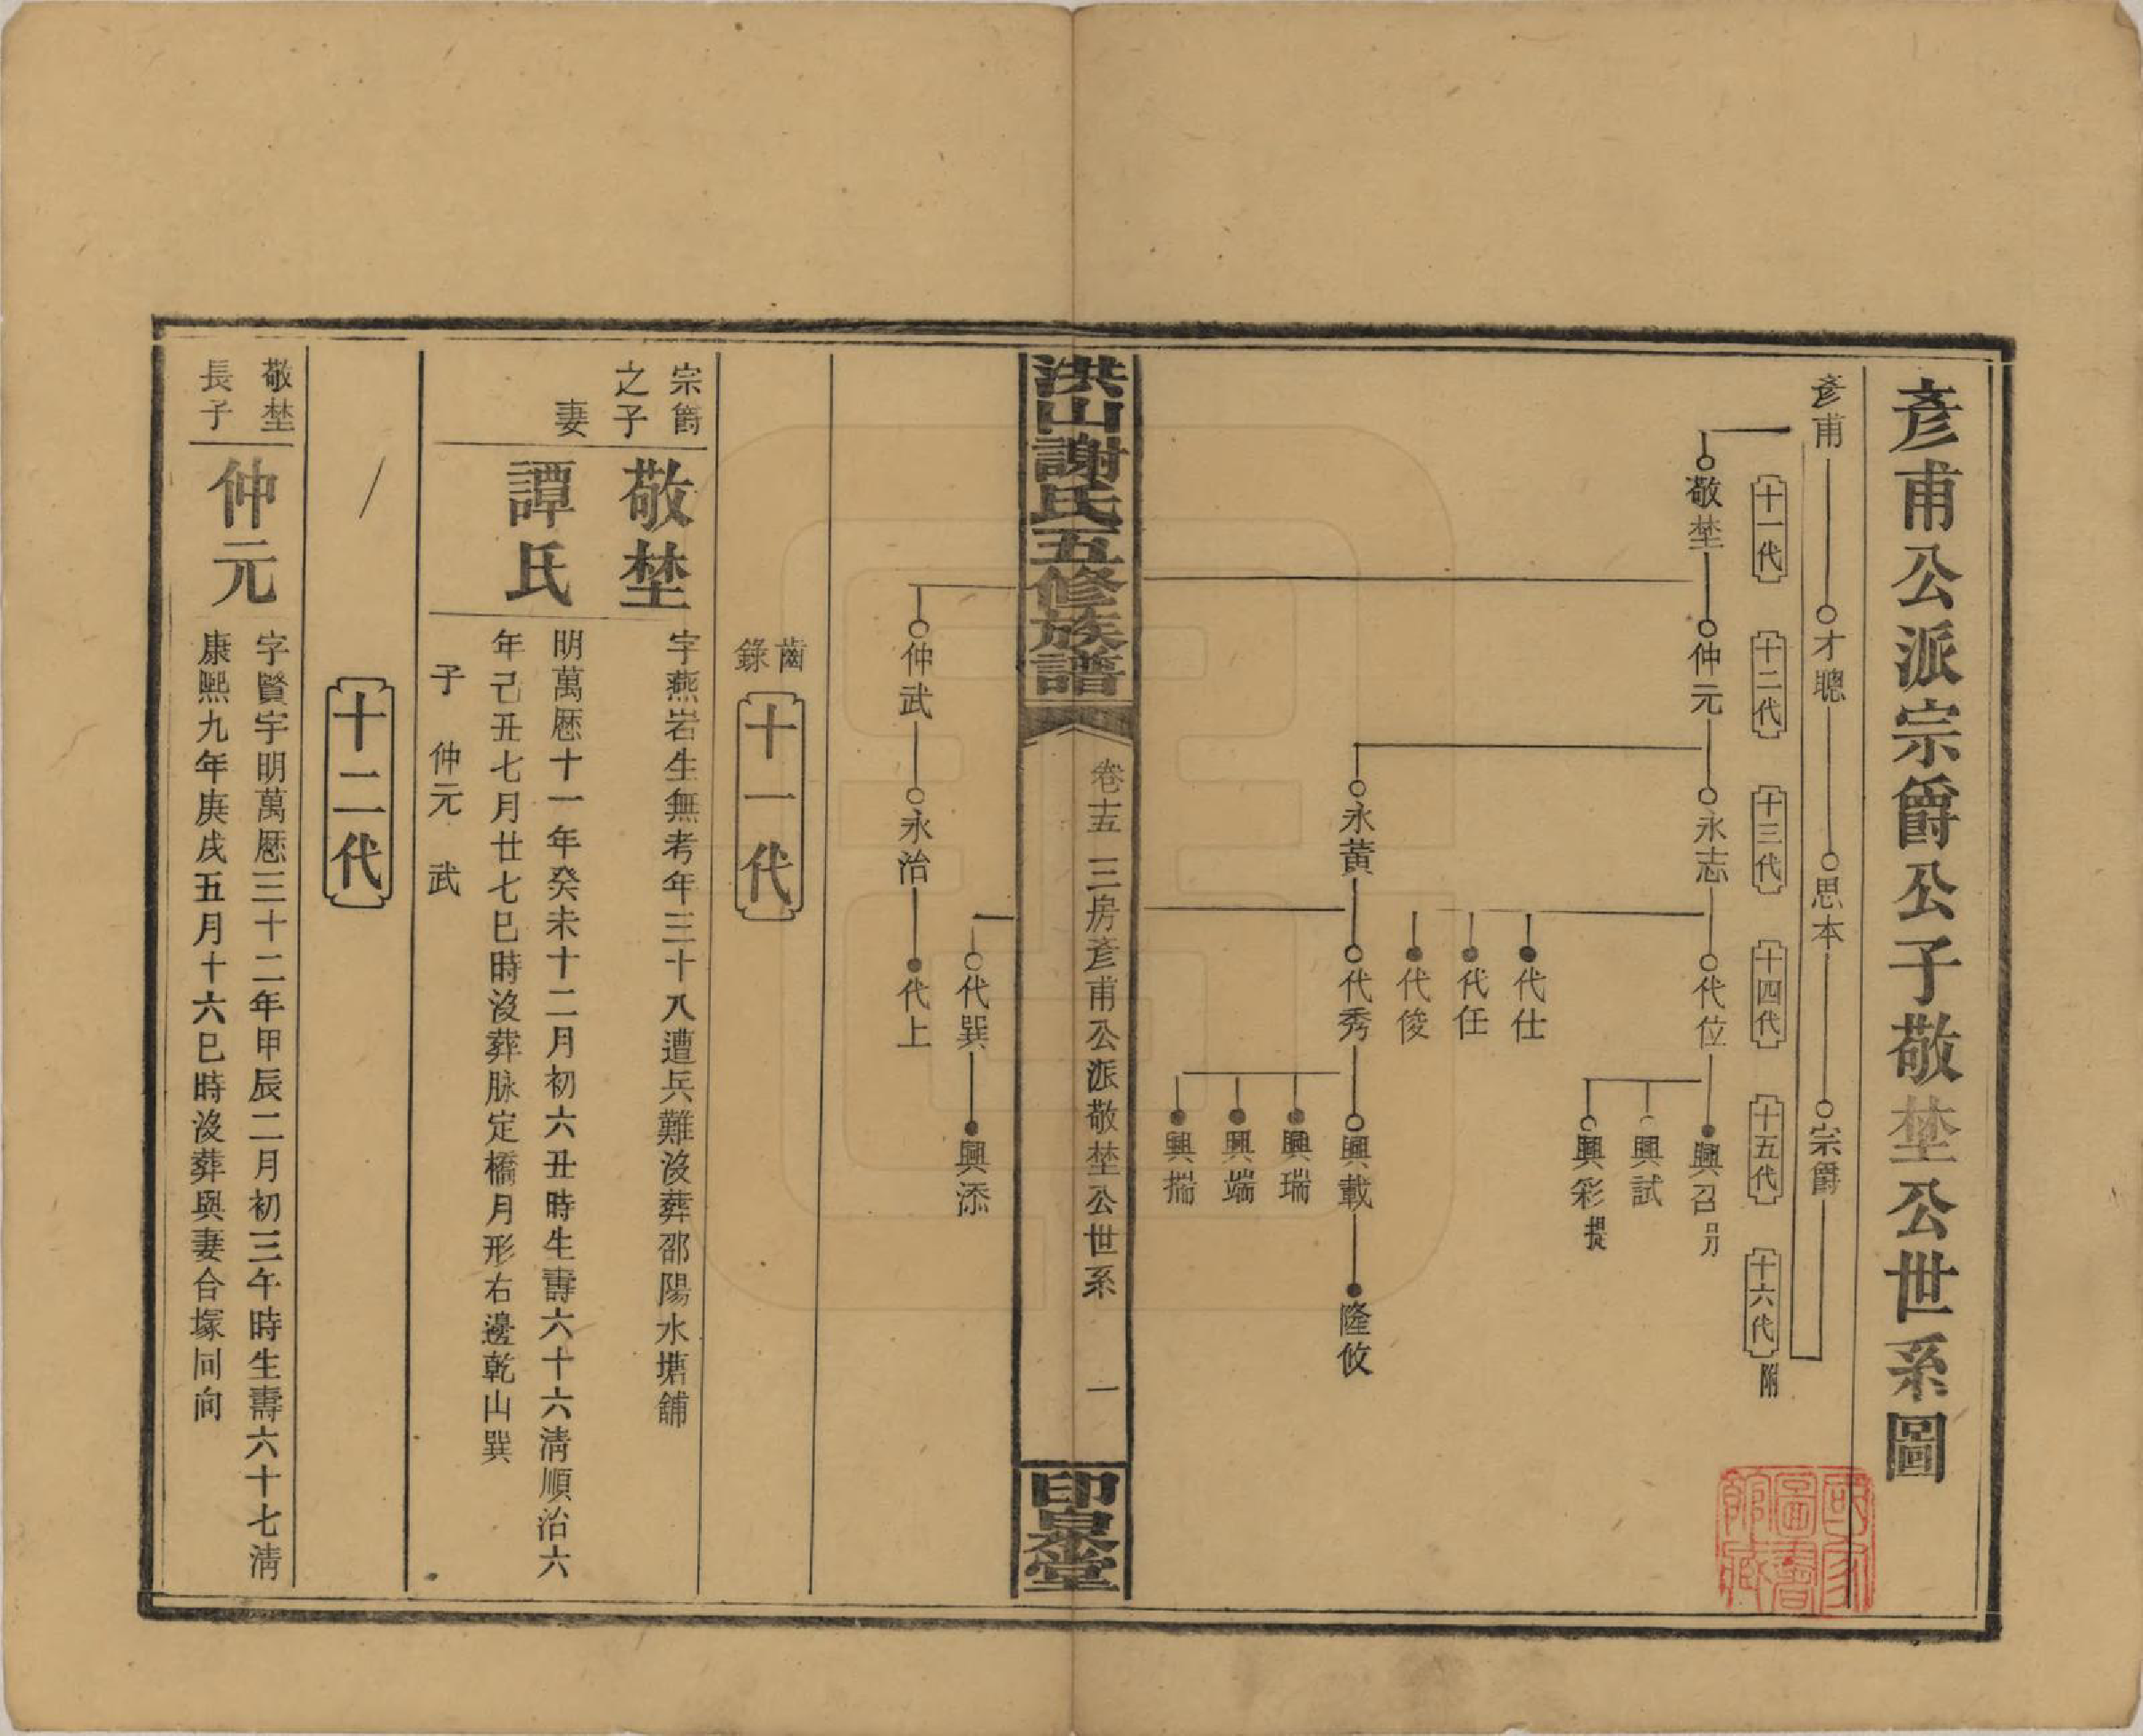 彥甫公派宗爵公子敬埜公世系圖
彥甫
才聰
思本
宗爵
十一代
十二代
十三代
十四代
十五代
十六代附
敬埜
仲元
永志
代位
興召
興試
興彩
代仕
代任
代俊
永黃
代秀
興載
隆攸
興瑞
興端
興揣
洪山謝氏五修族譜
卷十五
三房彥甫公派敬埜公世系
一
印泉堂
代巽
興添
仲武
永治
代上
齒錄
十一代
宗爵之子
敬埜
字燕岩生無考年三十八遭兵難沒葬邵陽水塘舖
妻
譚氏
明萬歷十一年癸未十二月初六丑時生壽六十六淸順治六
年己丑七月廿七巳時沒葬脉定橋月形右邊乾山巽
子 仲元 武
十二代
敬埜長子
仲元
字賢宇明萬歷三十二年甲辰二月初三午時生壽六十七淸
康熙九年庚戌五月十六巳時沒葬與妻合塚同向
國家圖書館藏